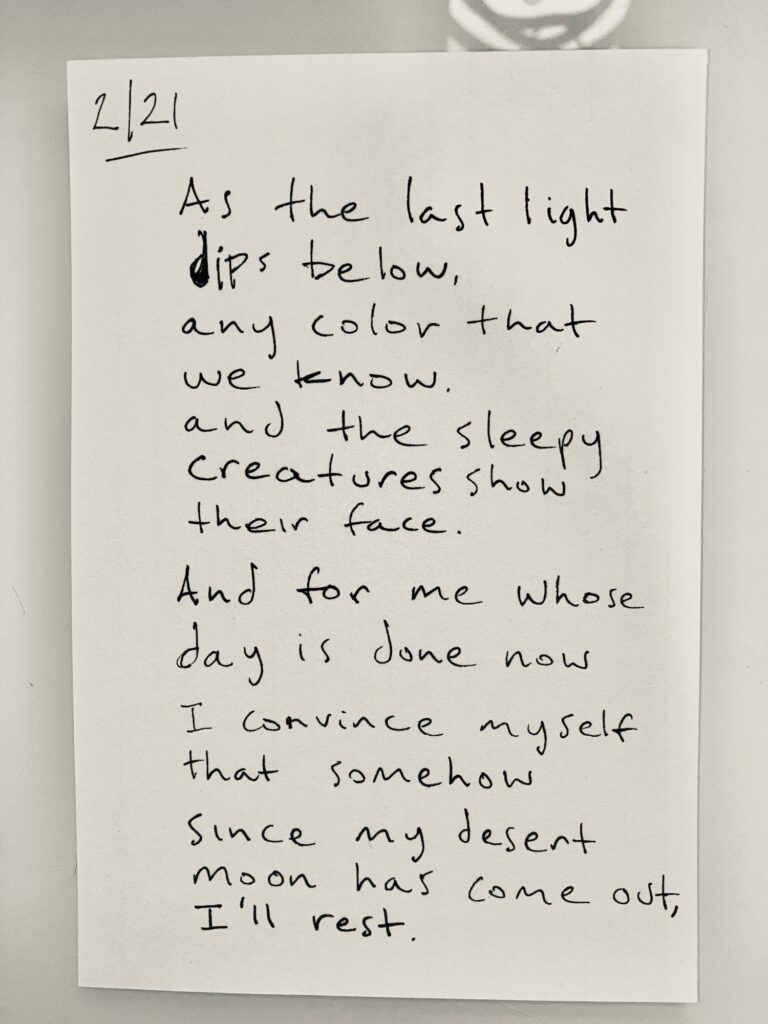 2/21
As the last light
dips below,
any color that
we know.
and the sleepy
creatures show
their face.
And for me whose
day is done now
I convince myself
that somehow
since my desert
moon has come out,
I'll rest.